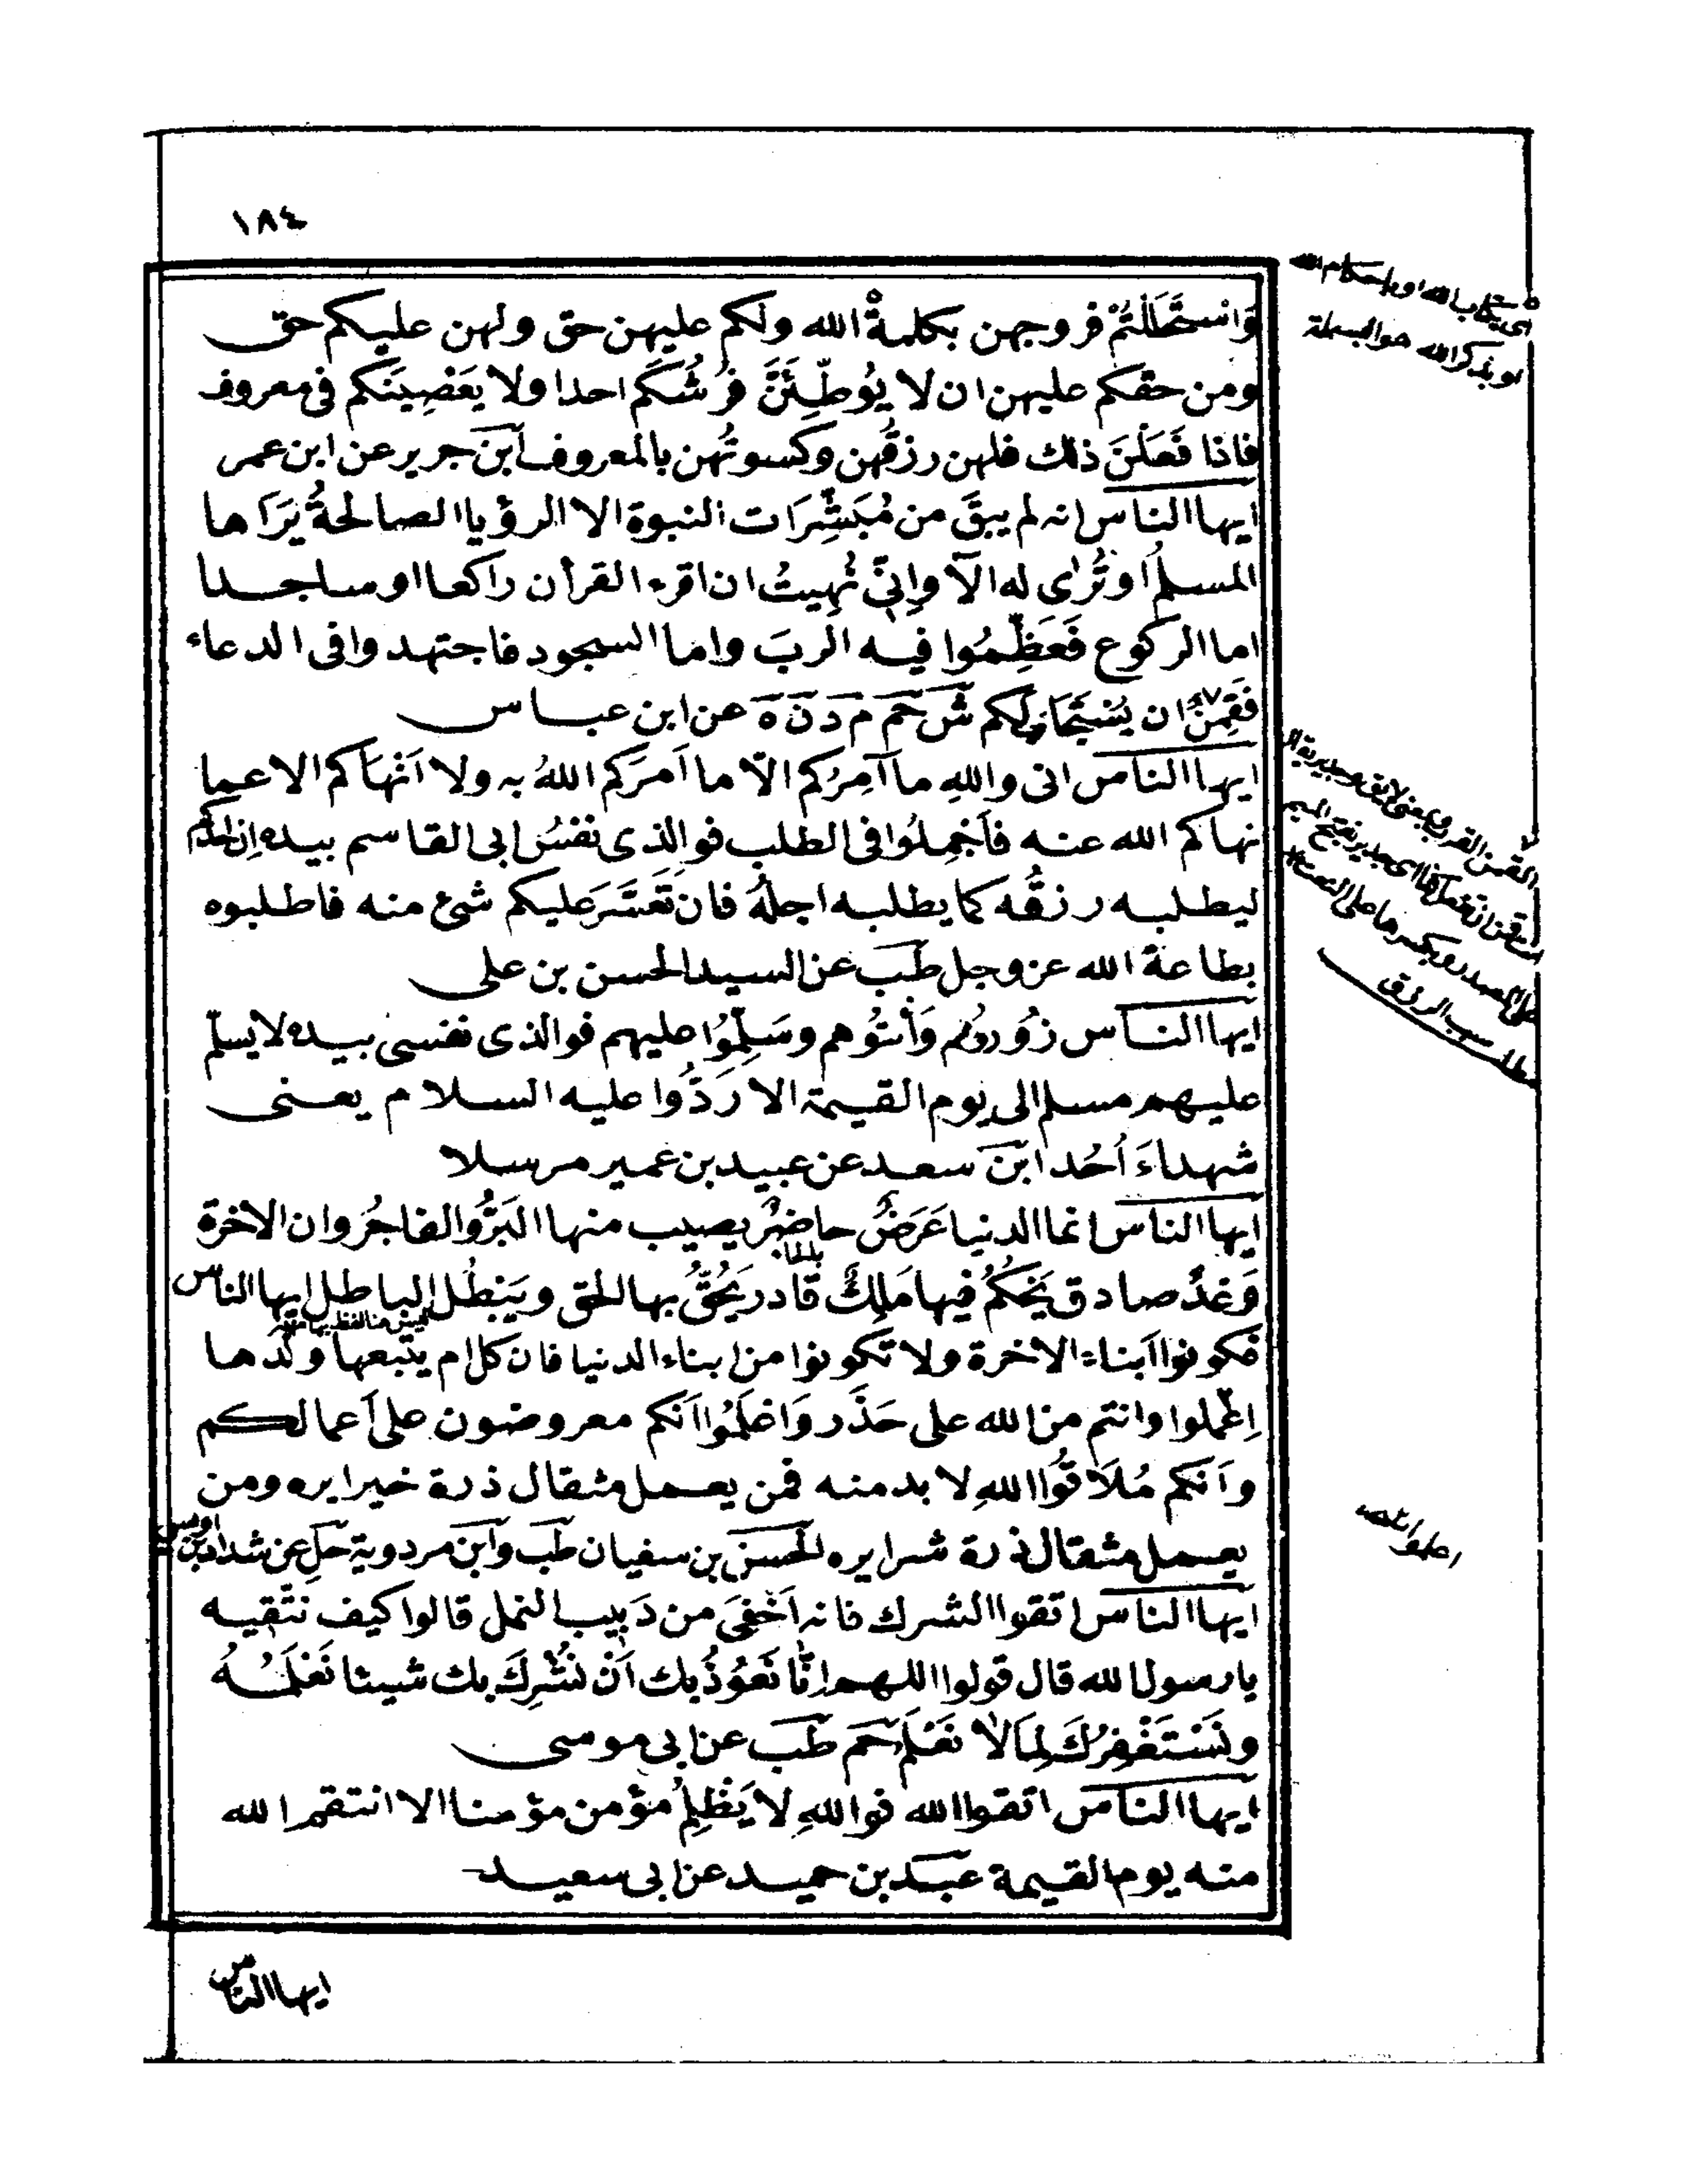 ١٨٤
وَاسْتَحْلَلْتُمْ فروجهن بكلمة الله ولكم عليهن حق ولهن عليكم حق
ومن حقكم عليهن ان لا يُوطِئْنَ فُرُشَكم احدا ولا يَعْصِينَكم فى معروف
فاذا فَعَلْنَ ذلك فلهن رزقُهن وكسوتُهن بالمعروف ابن جرير عن ابن عمر
ايها الناس انه لم يبقَ من مُبَشِّرَات النبوة الا الرؤيا الصالحةُ يَرَاها
المسلمُ او تُرٰى له الآ وإنّى نُهِيتُ ان اقرء القرأن راكعا او ساجدا
اما الركوع فَعَظِّمُوا فيه الربَ واما السجود فاجتهدوا فى الدعاء
فَقَمِنٌ ان يُسْتَجَابَ لكم ش حم م د ن ه عن ابن عباس
ايها الناس انى واللهِ ما آمِرُكم الّا ما اَمرَكم اللهُ به ولا اَنْهَاكم الا عما
نهاكم الله عنه فاَجْمِلُوا فى الطلب فوالذى نفسُ ابى القاسم بيده إن احدكم
ليطلبه رزقُه كما يطلبه اجلُهُ فان تَعَسَّرَ عليكم شئ منه فاطلبوه
بطاعة الله عز وجل طب عن السيد الحسن بن على
ايها الناس زُورُوهُم وَأْتُوهم وسَلِّمُوا عليهم فوالذى نفسى بيده لا يسلّم
عليهم مسلم الى يوم القيمة الا رَدُّوا عليه السلام يعنى
شهداءَ اُحُد ابن سعد عن عبيد بن عمير مرسلا
ايها الناس انما الدنيا عَرَضٌ حاضِرٌ يصيب منها البَرُّ والفاجُر وان الاخرة
وَعْدٌ صادق يَحْكُمُ فيها مَلِكٌ قادر يَحُقُّ بها الحق ويَبْطُل الباطل ايها الناس
فكونوا اَبناء الاخرة ولا تكونوا من ابناء الدنيا فان كل ام يتبعها ولدها
اِعْملوا وانتم من الله على حَذَر وَاعْلَمُوا اَنكم معروضون على اَعمالكم
واَنكم مُلَاقُوا اللهِ لا بد منه فمن يعمل مثقال ذرة خيرا يره ومن
يعمل مثقال ذرة شرا يره الحسن بن سفيان طب وابن مردوية حل عن شداد بن اوس
ايها الناس اتقوا الشرك فانه اَخْفىَ من دَبِيب النمل قالوا كيف نتّقيه
يا رسول الله قال قولوا اللهم اِنَّا نَعُوْذُ بك اَنْ نُشْرِكَ بك شيئا نَعْلَمُهُ
ونَسْتَغْفِرُكَ لِمَا لَا نَعْلَم حم طب عن ابى موسى
ايها الناس اتقوا الله فوا اللهِ لا يَظْلِمُ مؤمن مؤمنا الا انتقم الله
منه يوم القيمة عبد بن حميد عن ابى سعيد
اى بكتاب الله او باحكام الله
او بذكر الله هو البسملة
ايها الناس